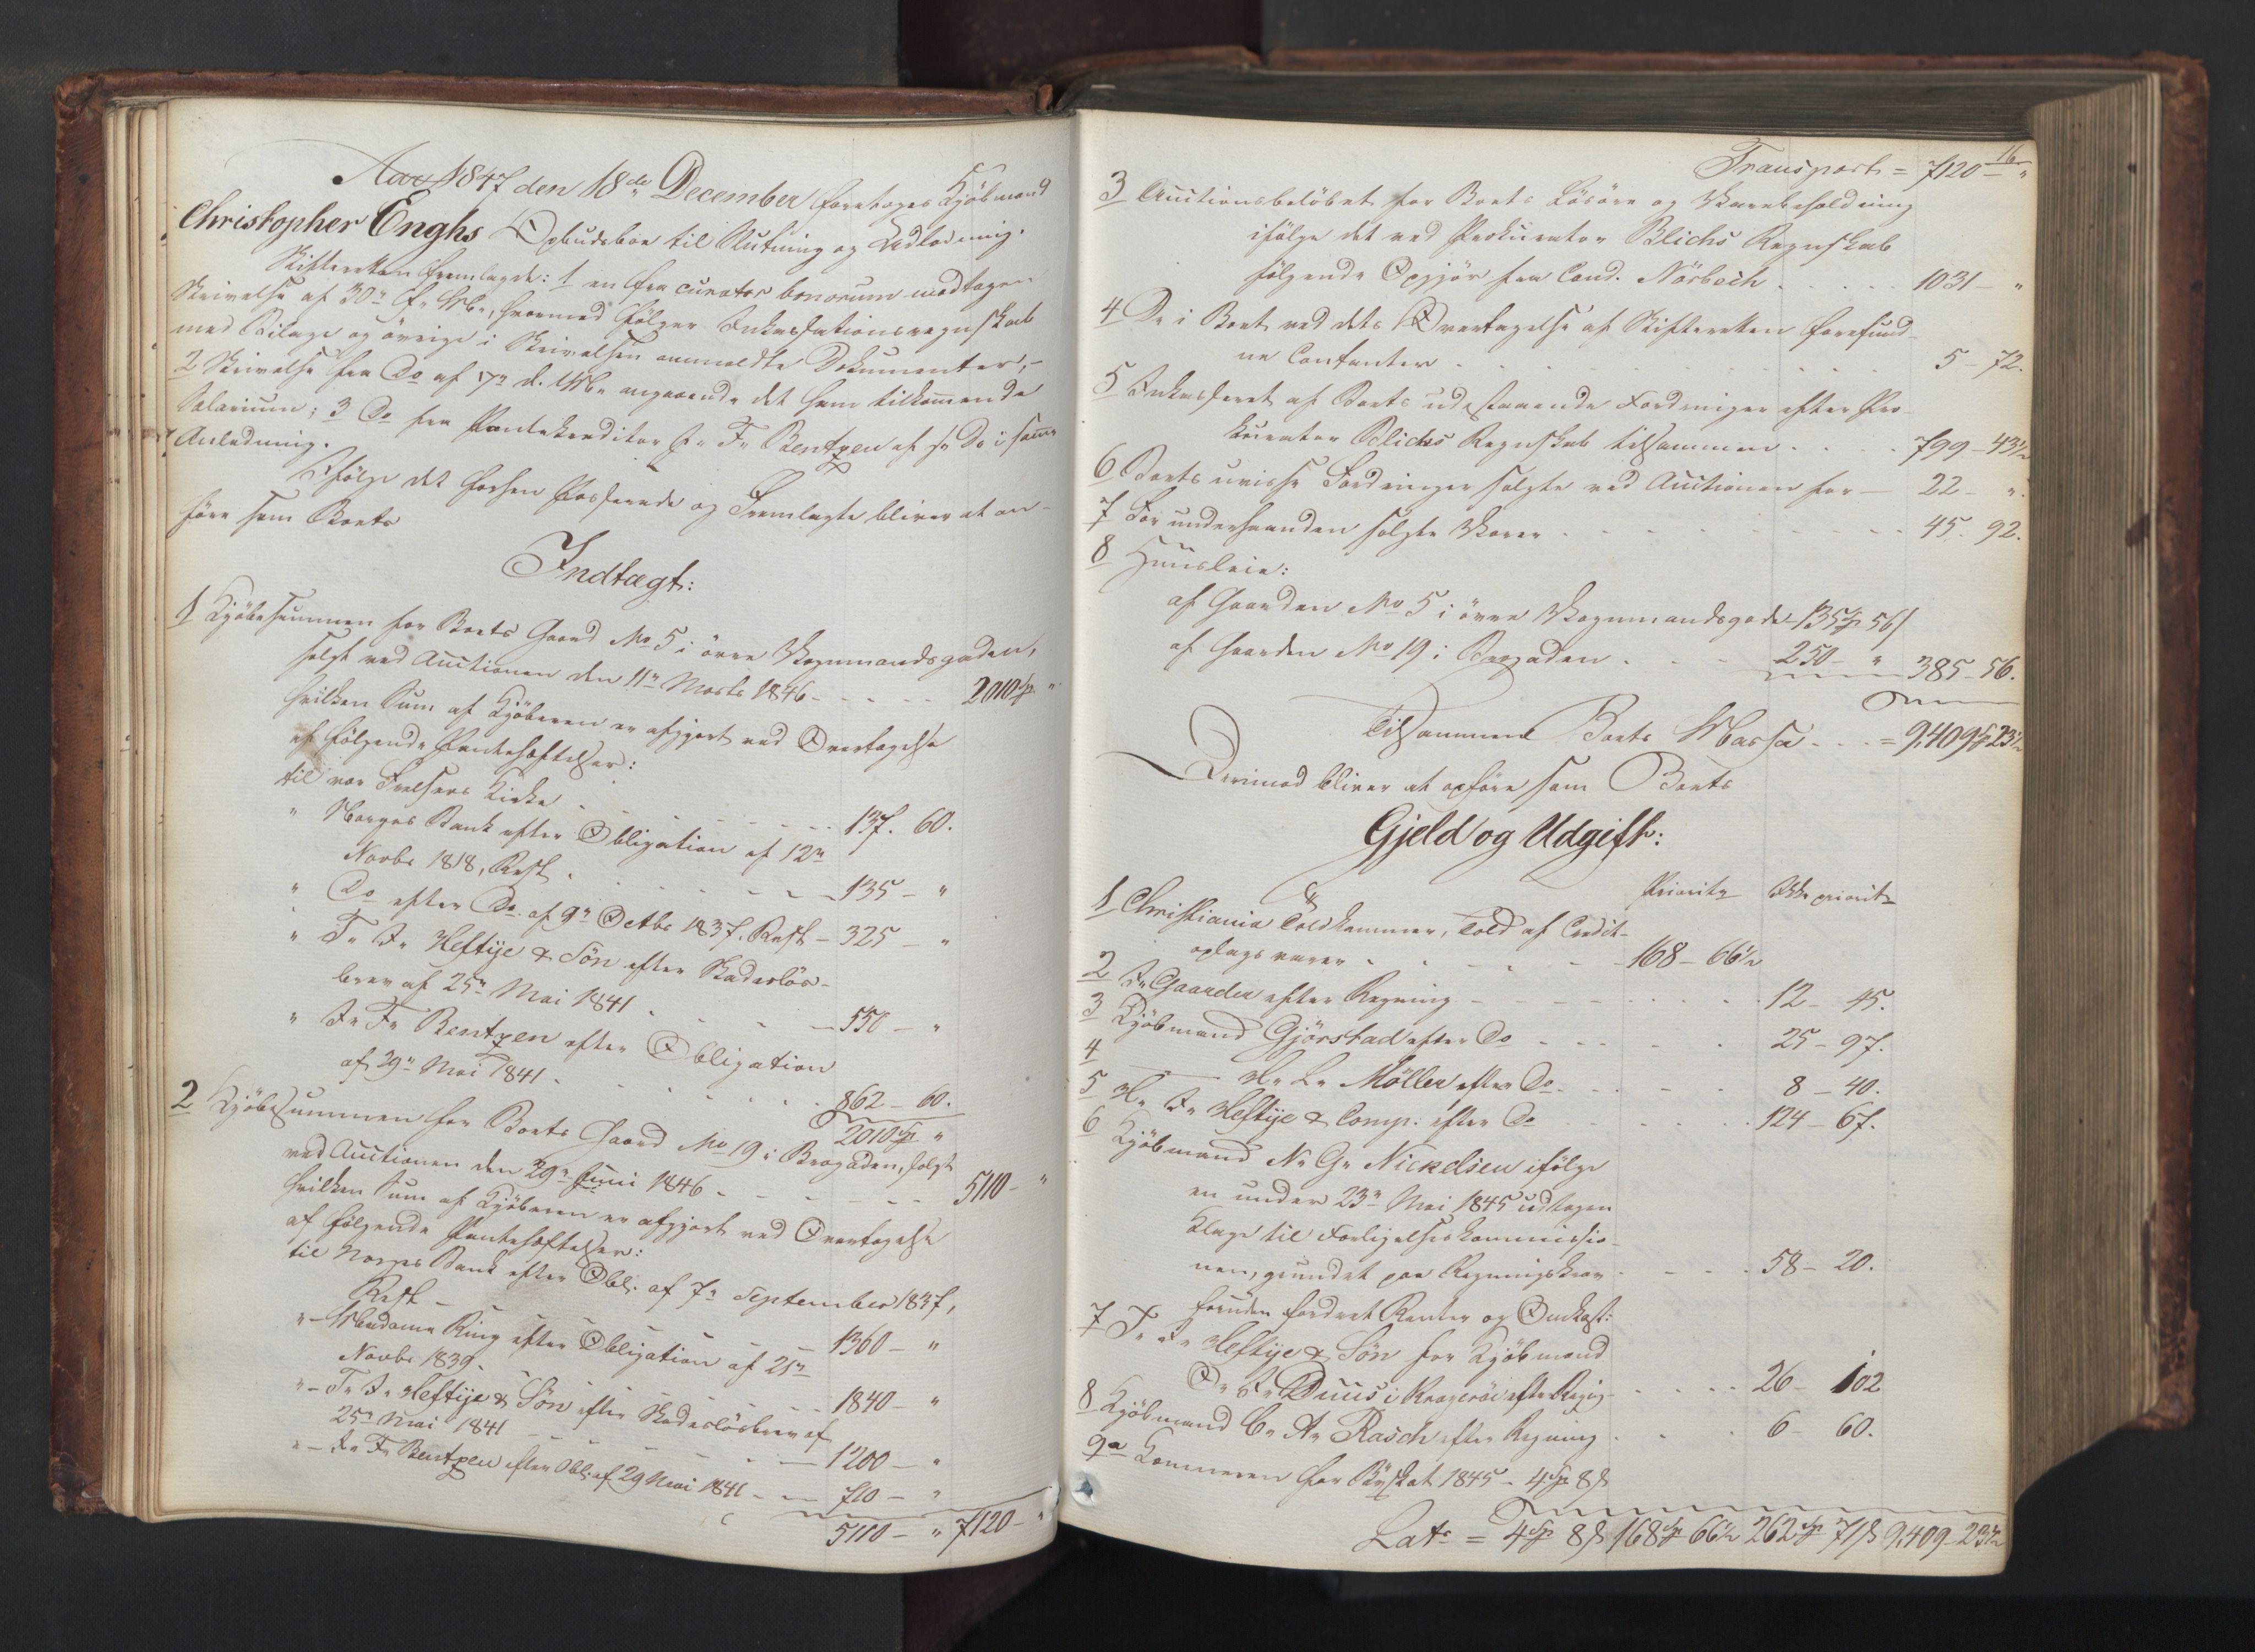 Aar 1847 den 18de December foretoges Kjöbmand
Christopher Enghs Opbudsboe til Slutning og Udlodning.
Skifteretten fremlagde: 1 en fra curator bonorum modtagen
Skrivelse af 30te f. M., hvormed fölger Inkassationsregnskab
med Bilage og övrige i Skrivelsen anmeldte Dokumenter; –
2 Skrivelse fra Do af 7de d. M. angaaende det ham tilkommende
Salarium; 3 Do fra Pantekreditor J. F. Bentzen af s. D. i samme
Anledning.
Ifölge det forhen Passerede og Fremlagte bliver at an-
före som Boets
Indtægt:
1 Kjöbesummen for Boets Gaard No 5 i övre Vognmandsgaden,
solgt ved Auctionen den 11te Marts 1846 - - - - 2010 Sp "
hvilken Sum af Kjöberen er afgjort ved Overtagelse
af fölgende Pantehæftelser:
til vor Frelsers Kirke . . . 137. 60.
" Norges Bank efter Obligation af 12te
Novbr 1818, Rest . . . 135 – "
" Do efter Do. af 9de Octbr 1837. Rest – 325 – "
" T. J. Heftye & Sön efter Skadeslös-
brev af 25de Mai 1841 . . . 550 – "
" J. F. Bentzen efter Obligation
af 29de Mai 1841 . . . 862 – 60.
2010 Sp "
2 Kjöbesummen for Boets Gaard No 19 i Brogaden, solgt
ved Auctionen den 29de Juni 1846 - - - - 5110 – "
hvilken Sum af Kjöberen er afgjort ved Overtagelse
af fölgende Pantehæftelser:
til Norges Bank efter Obl. af 7de September 1837,
Rest – . . . 1360 – "
" – Madame Ring efter Obligation af 21de
Novbr 1839. . . . 1840 – "
" – T. J. Heftye & Sön efter Skadeslösbrev af
25de Mai 1841 . . . 1200 – "
" – J. F. Bentzen efter Obl. af 29 Mai 1841 - – 710 – "
5110 – " 7120 – "
16
Transport = 7120 – "
3 Auctionsbelöbet for Boets Lösöre og Varebeholdning
ifölge det ved Prokurator Blichs Regnskab
fölgende Opgjör fra Cand. Nörbech . . . 1031 – "
4 De i Boet ved dets Overtagelse af Skifteretten forefund-
ne Contanter . . . 5 – 72.
5 Inkasseret af Boets udestaaende Fordringer efter Pro-
kurator Blichs Regnskab tilsammen . . . 799 – 43½
6 Boets uvisse Fordringer solgte ved Auctionen for – 22 – ".
7 For underhaanden solgte Varer . . . 45. 92.
8 Huusleie:
af Gaarden No 5 i övre Vognmandsgade – 135 Sp 56 ß
af Gaarden No 19 i Brogaden . . . 250 – " 385 – 56.
Tilsammen Boets Massa . . . = 9,409 Sp 23½
Derimod bliver at opföre som Boets
Gjeld og Udgift:
Prioritr Ikke prioritr
1 Christiania Toldkammer, Told af Credit-
oplags varer . . . 168 – 66½
2 J. Gaarder efter Regning – . . . 12 – 45.
3 Kjöbmand Gjörstad efter Do . . . 25 – 97.
4 —— H. L. Möller efter Do . . . 8 – 40.
5 H. J. Heftye & Comp. efter Do . . . 124 – 67.
6 Kjöbmand N. G. Nickelsen ifölge
en under 23de Mai 1845 udtagen
Klage til Forligelseskommissio-
nen, grundet paa Regningskrav . . . 58 – 20.
foruden fordret Renter og Omkost:
7 T. J. Heftye & Sön for Kjöbmand
O. J. Duus i Kragerö efter Regng . . . 26 – 102
8 Kjöbmand C. A. Rasch efter Regning . . . 6 – 60.
9a Kæmneren for Byskat 1845 – 4 Sp 8 ß
Lats = 4 Sp 8 ß 168 Sp 66½ 262 Sp 71 ß 9,409 – 23½